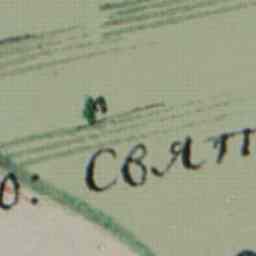 о: Свят